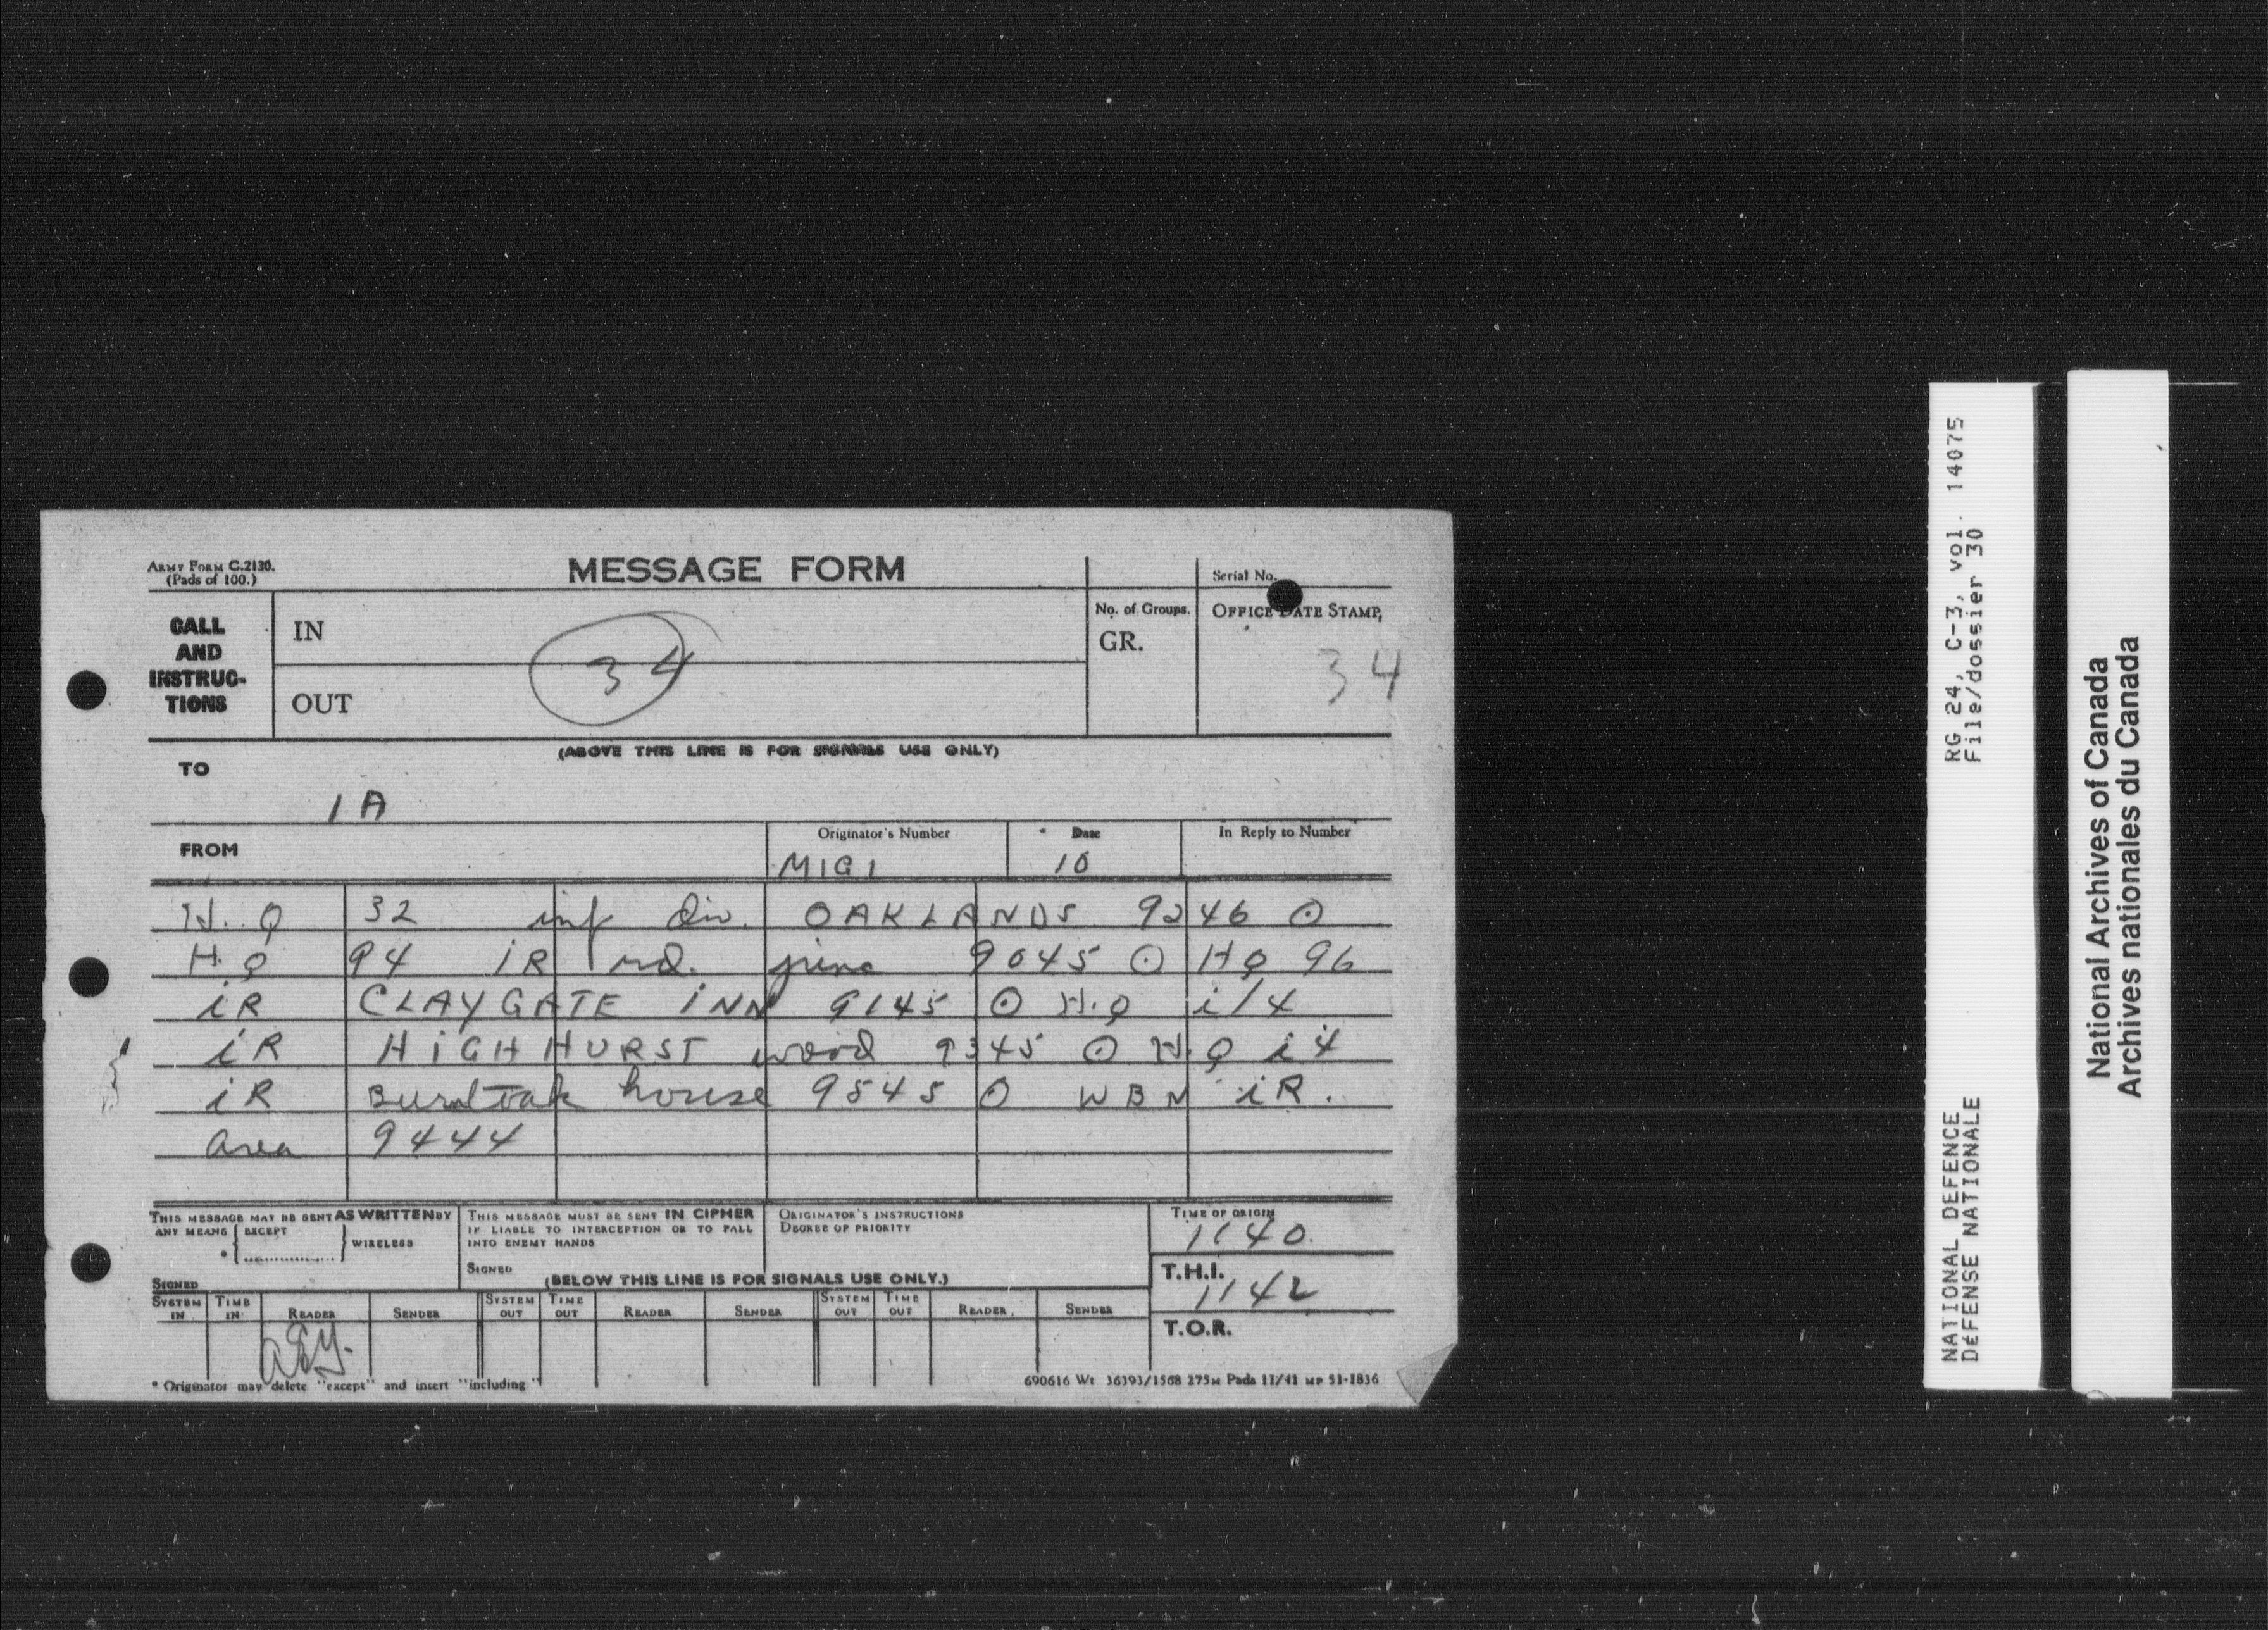 ARMY FORM C.2130.
(Pads of 100.)
MESSAGE FORM
Serial No.
CALL
AND
INSTRUC-
TIONS
IN
OUT
34
No. of Groups.
GR.
OFFICE DATE STAMP,
34
(ABOVE THIS LINE IS FOR SIGNALS USE ONLY)
TO
1A
FROM
Originator's Number
MIG1
Date
10
In Reply to Number
H.Q 32 inf Div. OAKLANDS 9246 ⊙
H.Q 94 iR rd. junc 9045 ⊙ HQ 96
iR CLAYGATE iNN 9145 ⊙ H.Q i/4
iR HiGH HURST wood 9345 ⊙ H.Q i4
iR Burntoak house 9545 ⊙ WBN iR.
area 9444
THIS MESSAGE MAY BE SENT AS WRITTEN BY
ANY MEANS EXCEPT
* .............. WIRELESS
SIGNED
THIS MESSAGE MUST BE SENT IN CIPHER
IF LIABLE TO INTERCEPTION OR TO FALL
INTO ENEMY HANDS
SIGNED
ORIGINATOR'S INSTRUCTIONS
DEGREE OF PRIORITY
TIME OF ORIGIN
1140.
T.H.I.
1142
T.O.R.
(BELOW THIS LINE IS FOR SIGNALS USE ONLY.)
SYSTEM IN TIME IN READER SENDER SYSTEM OUT TIME OUT READER SENDER SYSTEM OUT TIME OUT READER SENDER
* Originator may delete "except" and insert "including"
690616 Wt 36393/1568 275M Pads 11/41 MP 51-1836
NATIONAL DEFENCE RG 24, C-3, vol. 14075
DéFENSE NATIONALE File/dossier 30
National Archives of Canada
Archives nationales du Canada